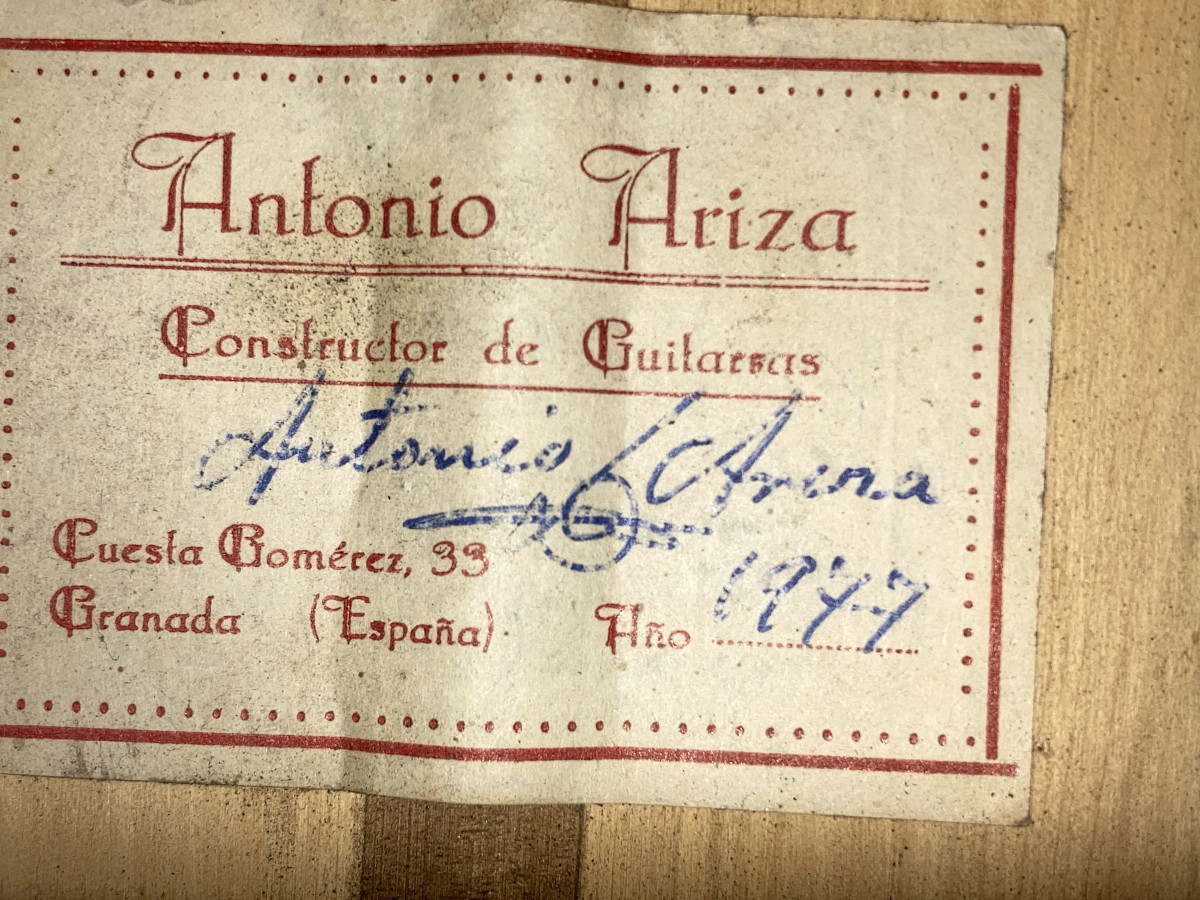 Antonio Ariza
Constructor de Guitarras
Antonio Ariza
Cuesta Gomérez, 33
Granada (España) Año 1977